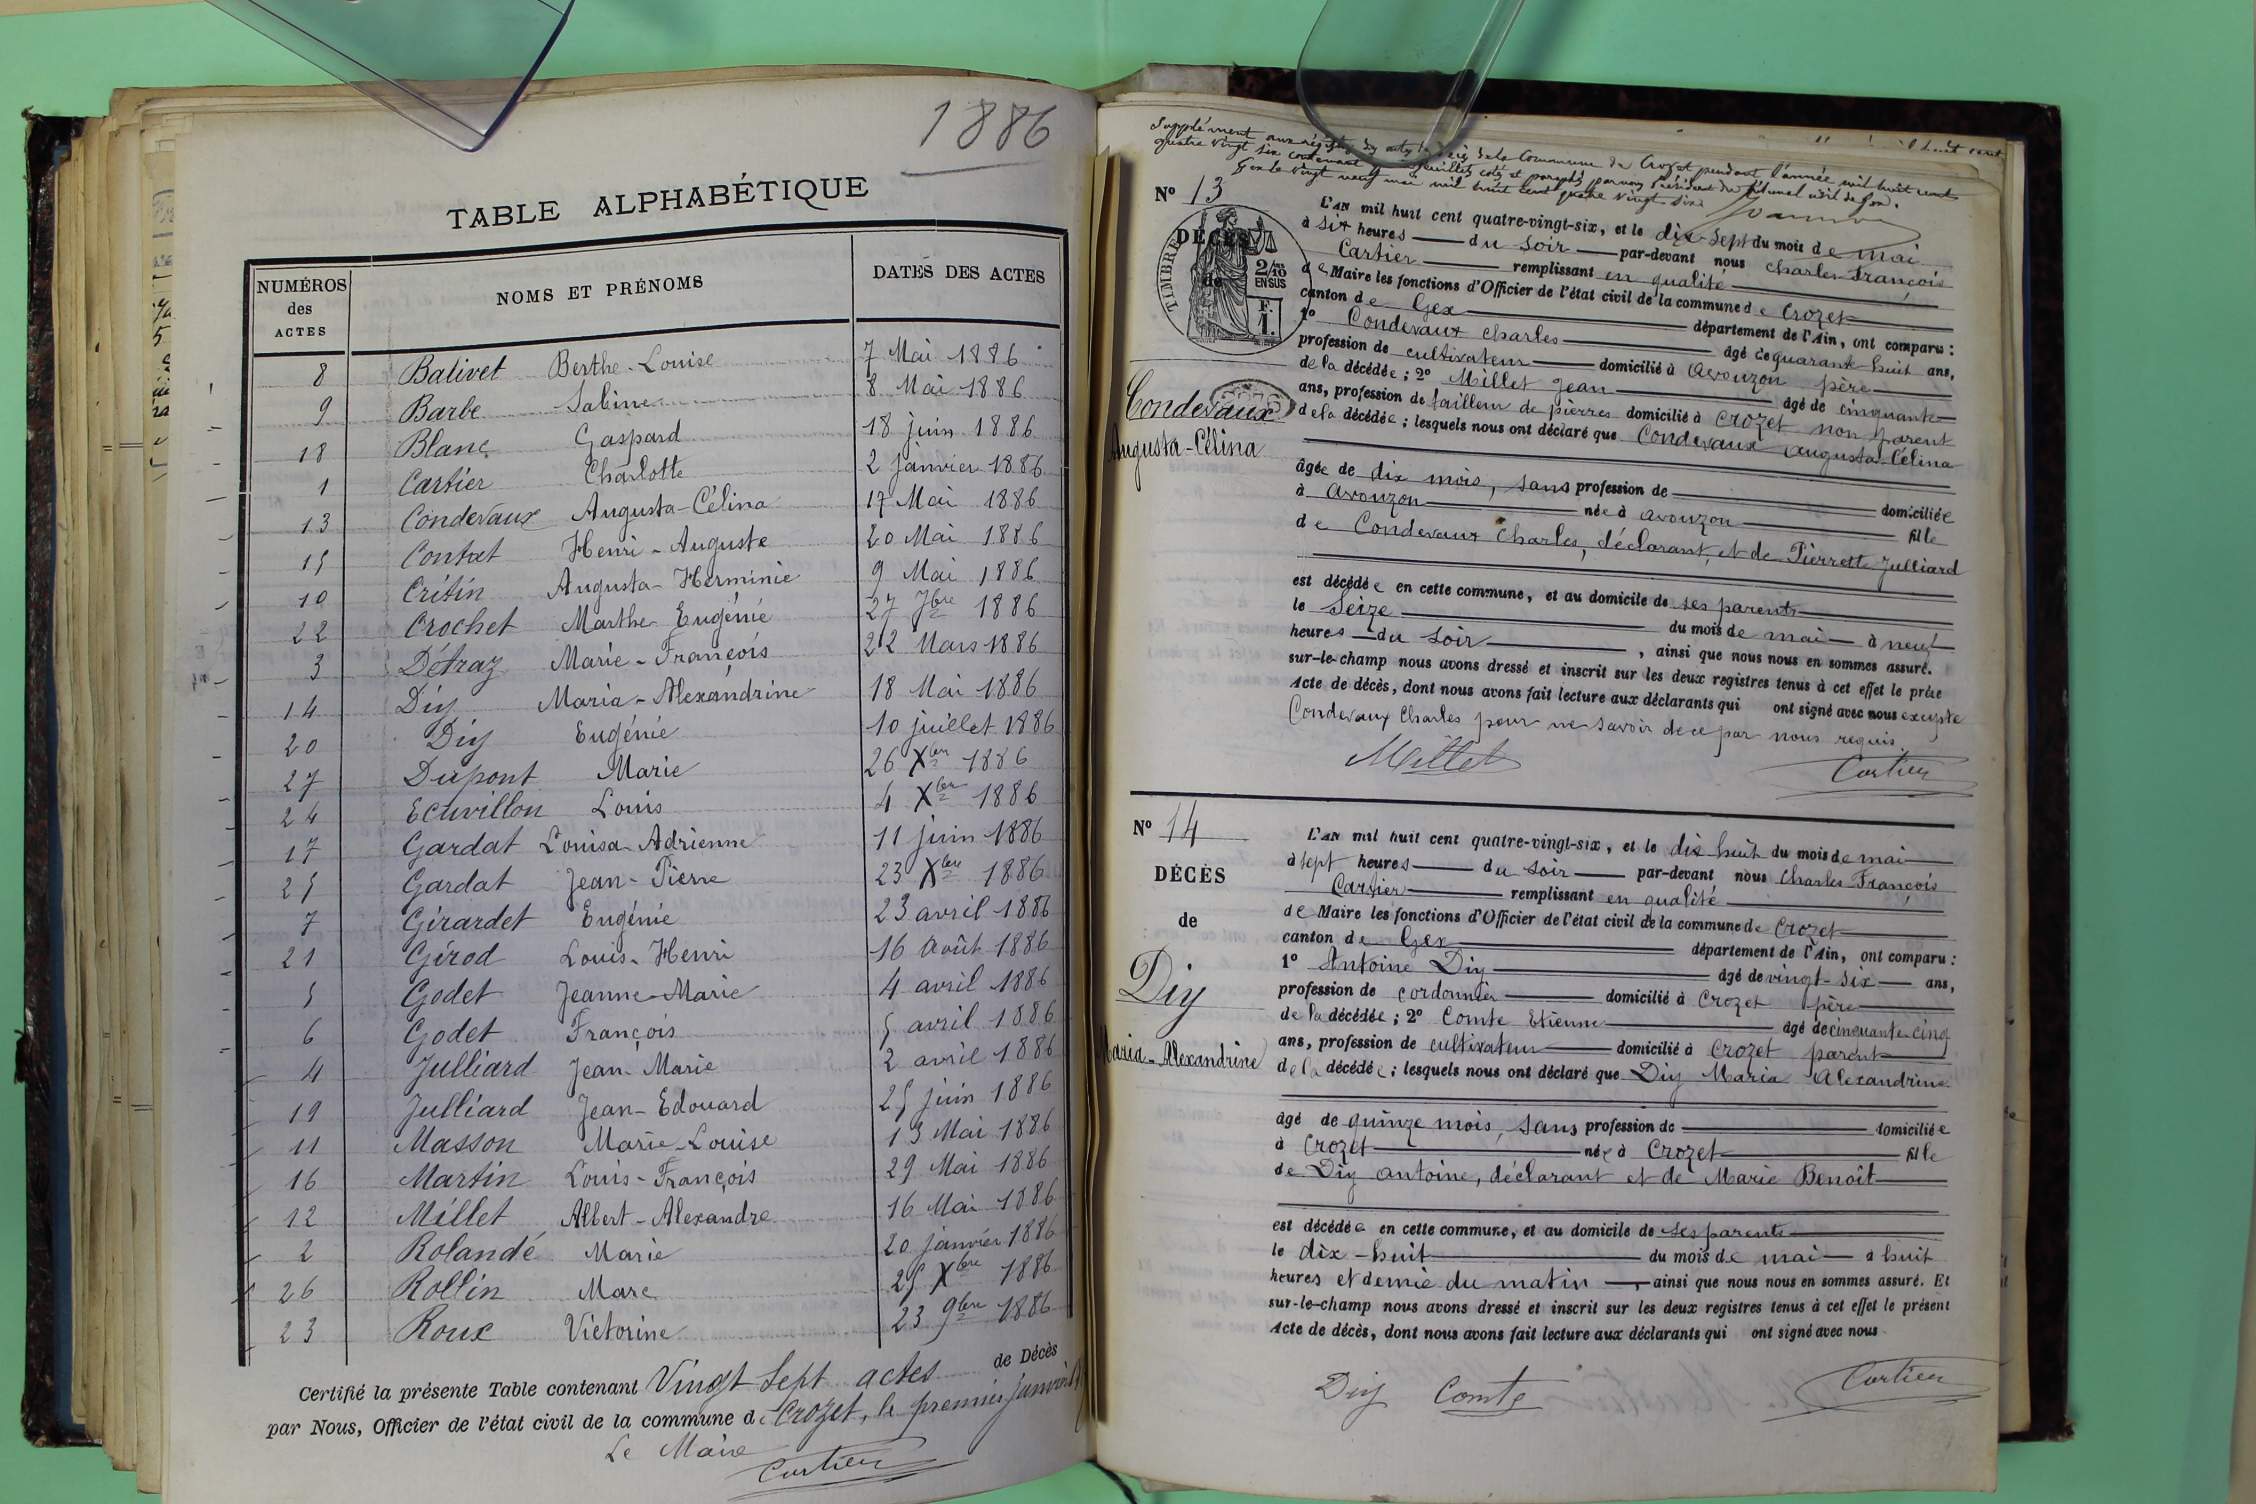 1886
TABLE ALPHABÉTIQUE
NUMÉROS des ACTES NOMS ET PRÉNOMS DATES DES ACTES
8 Balivet Berthe-Louise 7 Mai 1886
9 Barbe Sabine 8 Mai 1886
18 Blanc Gaspard 18 juin 1886
1 Cartier Charlotte 2 janvier 1886
13 Condevaux Augusta-Célina 17 Mai 1886
15 Contat Henri-Auguste 20 Mai 1886
10 Critin Augusta-Herminie 9 Mai 1886
22 Crochet Marthe-Eugénie 27 7bre 1886
3 Détraz Marie-François 22 Mars 1886
14 Diy Maria-Alexandrine 18 Mai 1886
20 Diy Eugénie 10 juillet 1886
27 Dupont Marie 26 Xbre 1886
24 Ecuvillon Louis 4 Xbre 1886
17 Gardat Louisa-Adrienne 11 juin 1886
25 Gardat Jean-Pierre 23 Xbre 1886
7 Girardet Eugénie 23 avril 1886
21 Girod Louis-Henri 16 Août 1886
5 Godet Jeanne-Marie 4 avril 1886
6 Godet François 5 avril 1886
4 Julliard Jean-Marie 2 avril 1886
19 Julliard Jean-Edouard 25 juin 1886
11 Masson Marie-Louise 13 Mai 1886
16 Martin Louis-François 29 Mai 1886
12 Millet Albert-Alexandre 16 Mai 1886
2 Rolandé Marie 20 janvier 1886
26 Rollin Marc 25 Xbre 1886
23 Roux Victorine 23 9bre 1886
Certifié la présente Table contenant Vingt Sept actes de Décès
par Nous, Officier de l'état civil de la commune de Crozet, le premier janvier
Le Maire
Cartier
Supplément aux registres des actes de décès de la Commune de Crozet pendant l'année mil huit cent
quatre vingt six contenant feuillets cotés et paraphés par nous Président du tribunal civil de Gex.
Gex le vingt neuf mai mil huit cent quatre vingt six
N° 13
DÉCÈS
de
TIMBRE
2/10 EN SUS
F.
1.
Condevaux
Augusta-Célina
L'AN mil huit cent quatre-vingt-six, et le dix-sept du mois de mai
à six heures du soir par-devant nous Charles François
Cartier remplissant en qualité
de Maire les fonctions d'Officier de l'état civil de la commune de Crozet
canton de Gex département de l'Ain, ont comparu :
1° Condevaux Charles âgé de quarante huit ans,
profession de cultivateur domicilié à Avouzon père
de la décédée ; 2° Millet Jean âgé de cinquante
ans, profession de tailleur de pierres domicilié à Crozet non parent
de la décédée ; lesquels nous ont déclaré que Condevaux Augusta-Célina
âgée de dix mois, sans profession de domiciliée
à Avouzon née à Avouzon fille
de Condevaux Charles, déclarant, et de Pierrette Julliard
est décédée en cette commune, et au domicile de ses parents
le Seize du mois de mai à neuf
heures du soir , ainsi que nous nous en sommes assuré.
sur-le-champ nous avons dressé et inscrit sur les deux registres tenus à cet effet le prése
Acte de décès, dont nous avons fait lecture aux déclarants qui ont signé avec nous excepté
Condevaux Charles pour ne savoir de ce par nous requis.
Millet Cartier
N° 14
DÉCÈS
de
Diy
Maria-Alexandrine
L'AN mil huit cent quatre-vingt-six, et le dix huit du mois de mai
à sept heures du soir par-devant nous Charles François
Cartier remplissant en qualité
de Maire les fonctions d'Officier de l'état civil de la commune de Crozet
canton de Gex département de l'Ain, ont comparu :
1° Antoine Diy âgé de vingt-six ans,
profession de cordonnier domicilié à Crozet père
de la décédée ; 2° Comte Etienne âgé de cinquante cinq
ans, profession de cultivateur domicilié à Crozet parent
de la décédée ; lesquels nous ont déclaré que Diy Maria Alexandrine
âgé de quinze mois, sans profession de domiciliée
à Crozet née à Crozet fille
de Diy Antoine, déclarant et de Marie Benoit
est décédée en cette commune, et au domicile de ses parents
le dix-huit du mois de mai à huit
heures et demie du matin , ainsi que nous nous en sommes assuré. Et
sur-le-champ nous avons dressé et inscrit sur les deux registres tenus à cet effet le présent
Acte de décès, dont nous avons fait lecture aux déclarants qui ont signé avec nous
Diy Comte Cartier